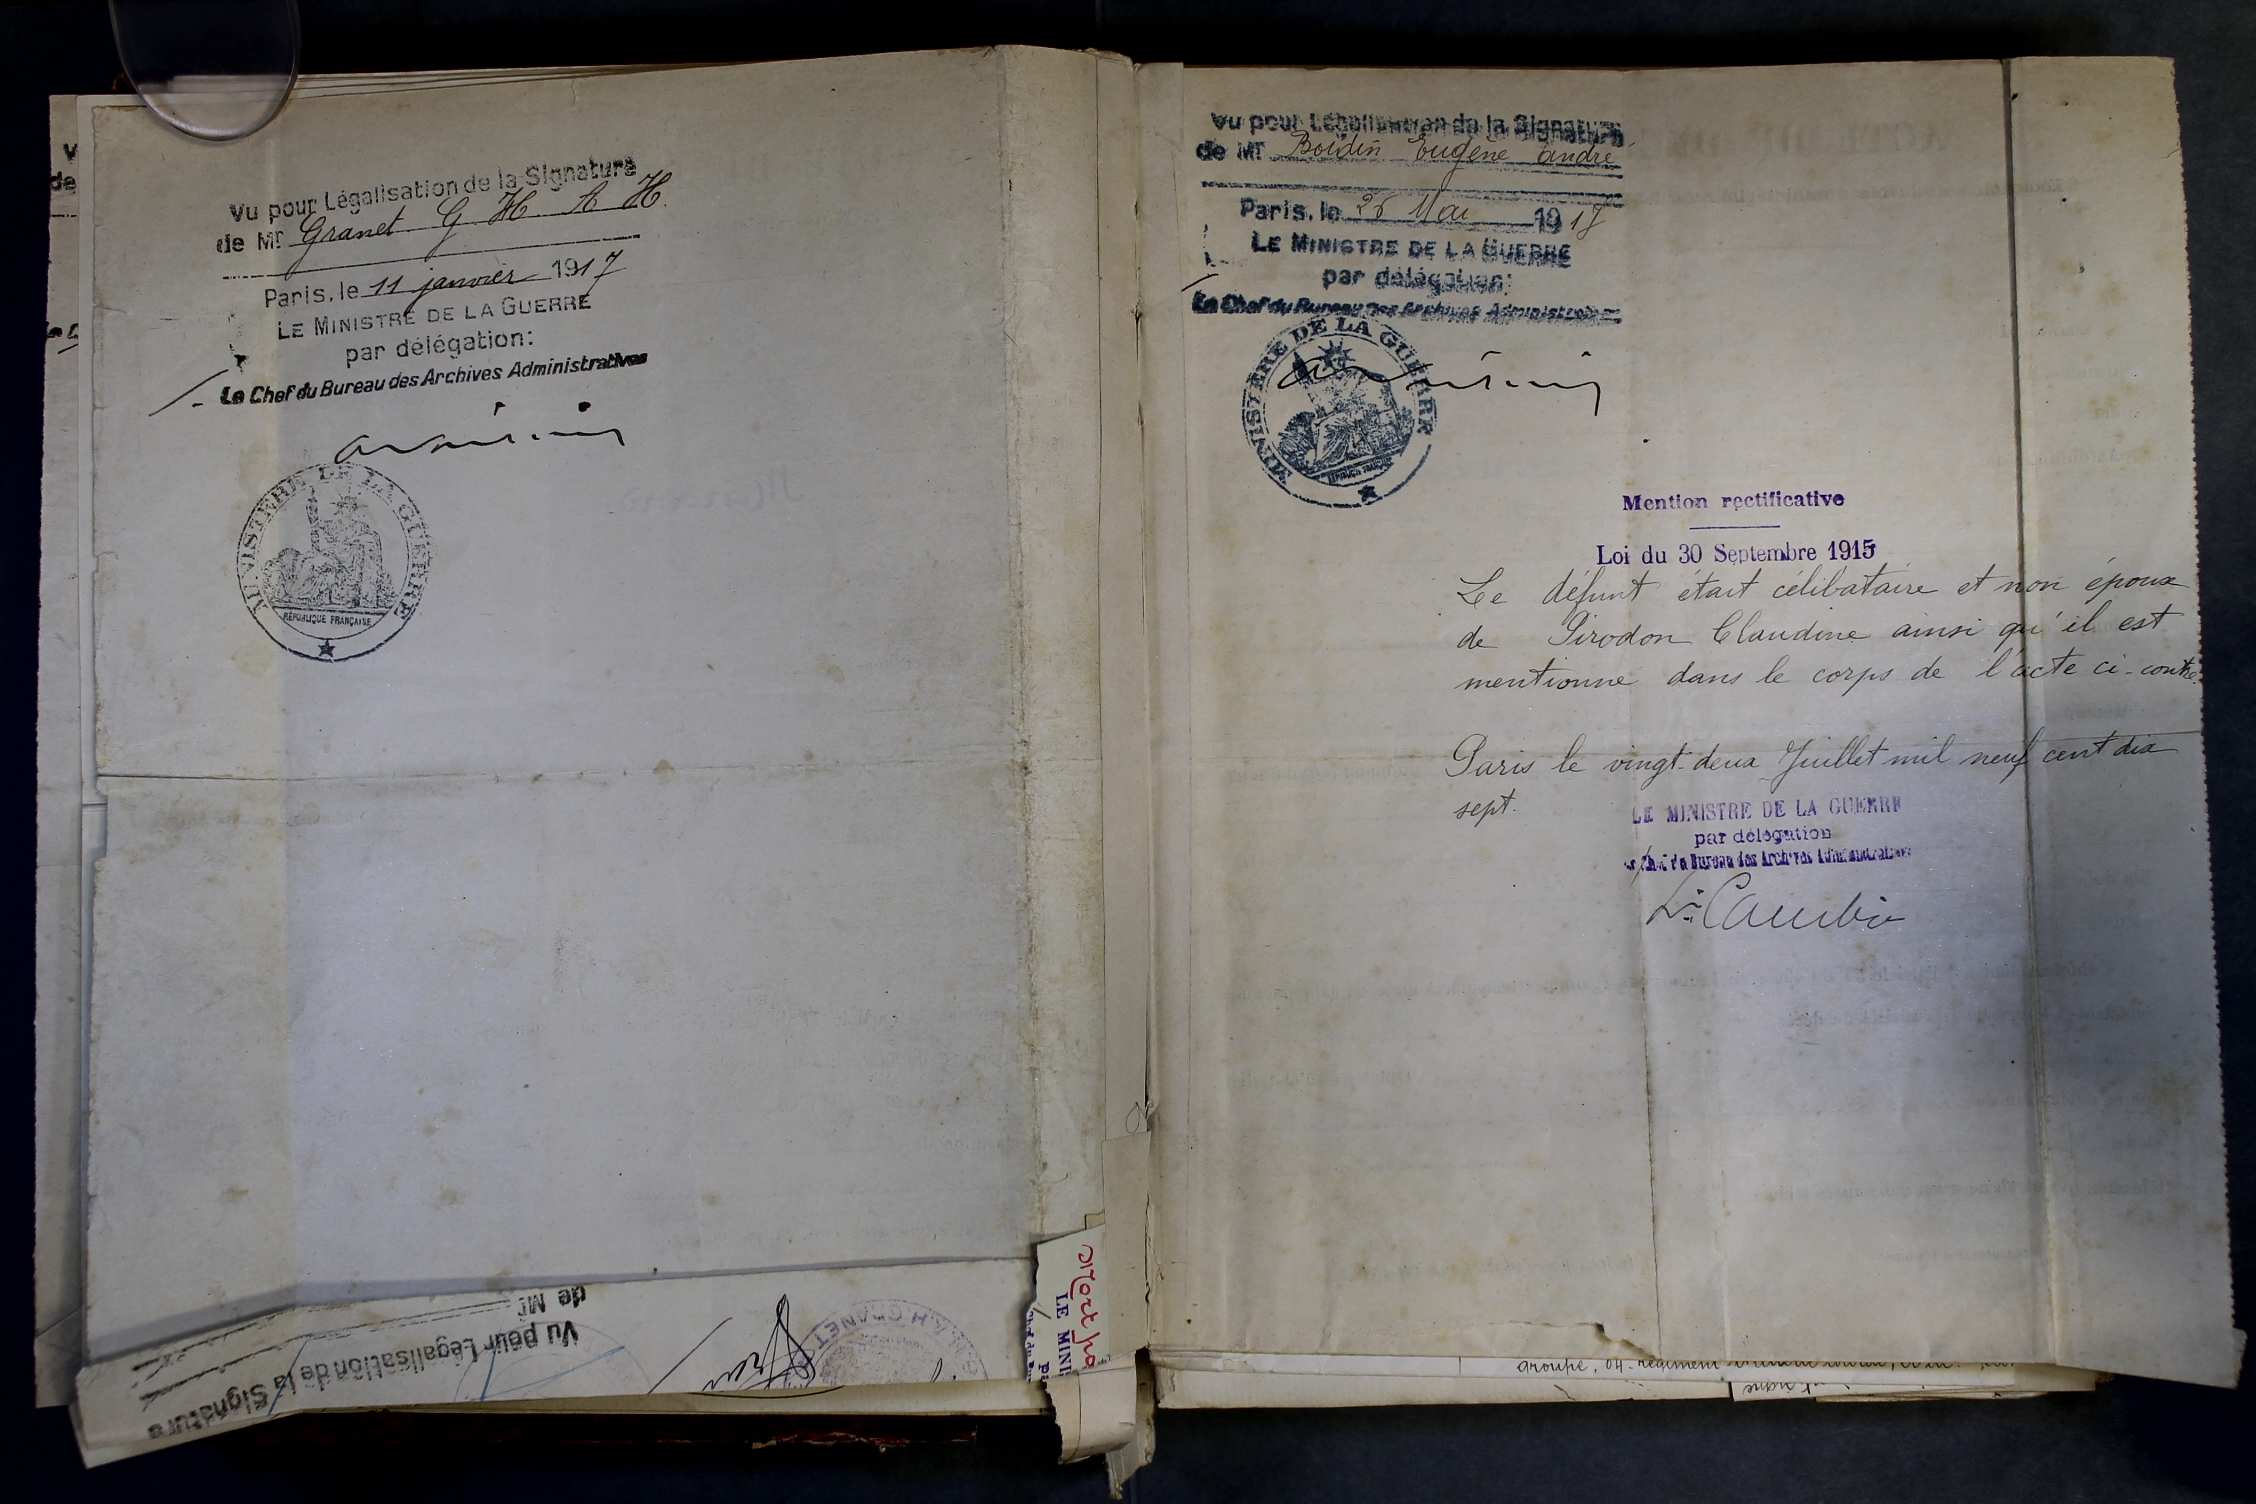 Vu pour Légalisation de la Signature
de Mr Granet G H A H.
Paris, le 11 janvier 1917
LE MINISTRE DE LA GUERRE
par délégation:
Le Chef du Bureau des Archives Administratives
MINISTÈRE DE LA GUERRE
RÉPUBLIQUE FRANÇAISE
de Mr
Vu pour Légalisation de la Signature
H GRANET
Mort po
LE MINI
Vu pour Légalisation de la Signature
de Mr Boidin Eugène André
Paris, le 26 Mai 1917
LE MINISTRE DE LA GUERRE
par délégation:
Le Chef du Bureau des Archives Administratives
MINISTÈRE DE LA GUERRE
Mention rectificative
Loi du 30 Septembre 1915
Le défunt était célibataire et non époux
de Pirodon Claudine ainsi qu'il est
mentionné dans le corps de l'acte ci-contre.
Paris le vingt-deux Juillet mil neuf cent dix
sept.
LE MINISTRE DE LA GUERRE
par délégation
Le Chef du Bureau des Archives Administratives
groupe, 84e régiment